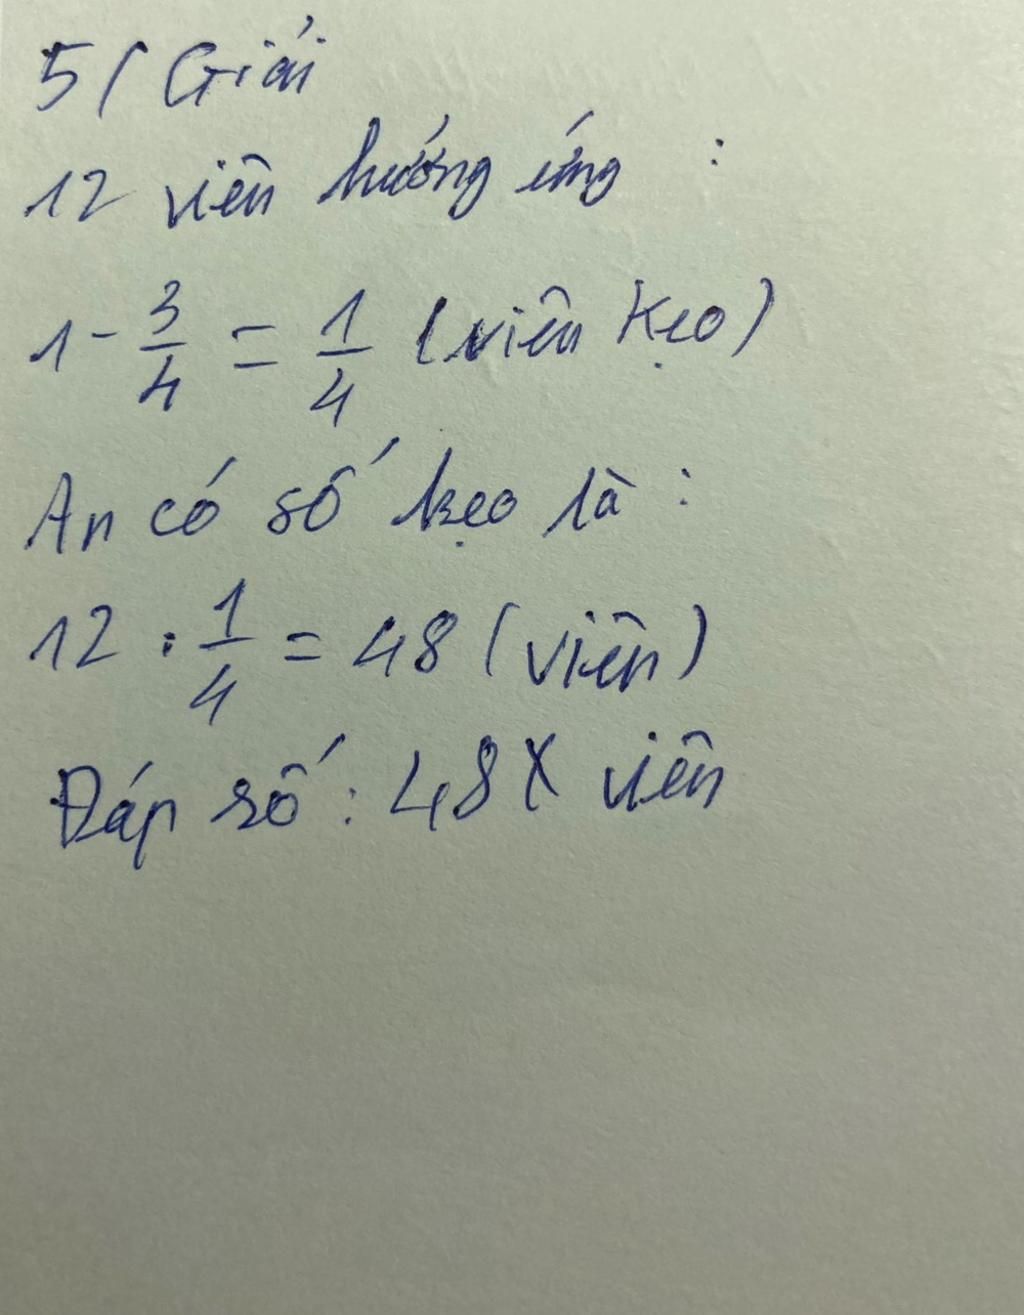 5/ Giải
12 viên hướng ứng :
1 - 3/4 = 1/4 (viên kẹo)
An có số kẹo là :
12 : 1/4 = 48 (viên)
Đáp số : 48 viên